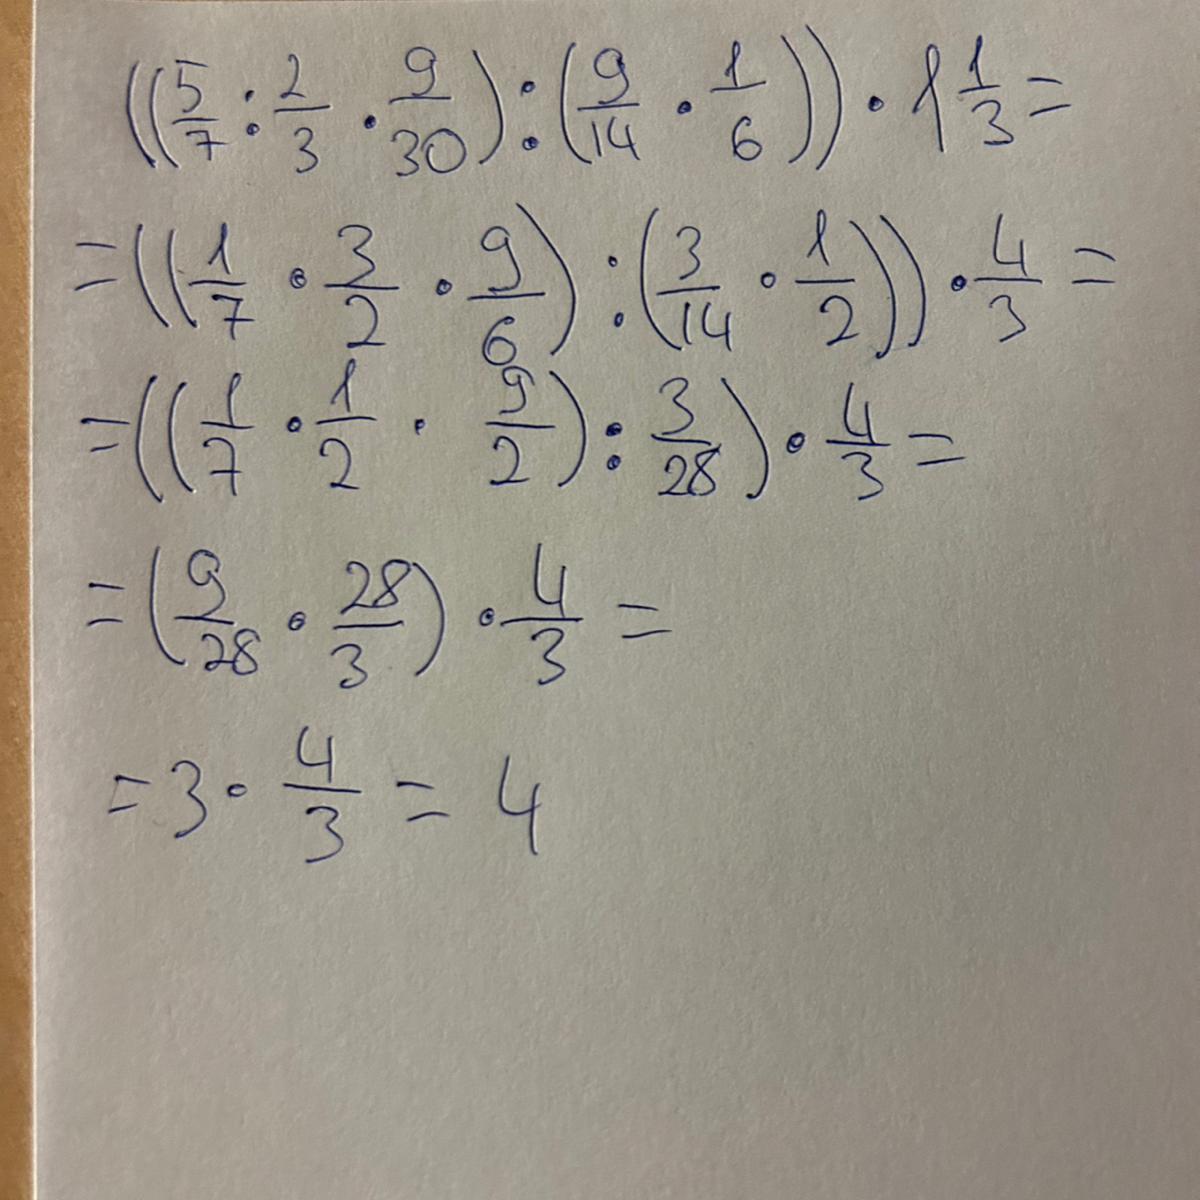 ((5/7 : 2/3 · 9/30) : (9/14 · 1/6)) · 1 1/3 =
= ((1/7 · 3/2 · 9/6) : (3/14 · 1/2)) · 4/3 =
= ((1/7 · 1/2 · 9/2) : 3/28) · 4/3 =
= (9/28 · 28/3) · 4/3 =
= 3 · 4/3 = 4